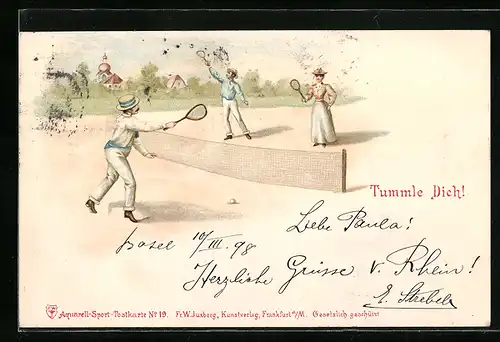 Tummle Dich!
Liebe Paula!
Basel 10/III. 98
Herzliche Grüsse v. Rhein!
E. Strebel
Aquarell-Sport-Postkarte No 19. Fr. W. Juxberg, Kunstverlag, Frankfurt a/M. Gesetzlich geschützt